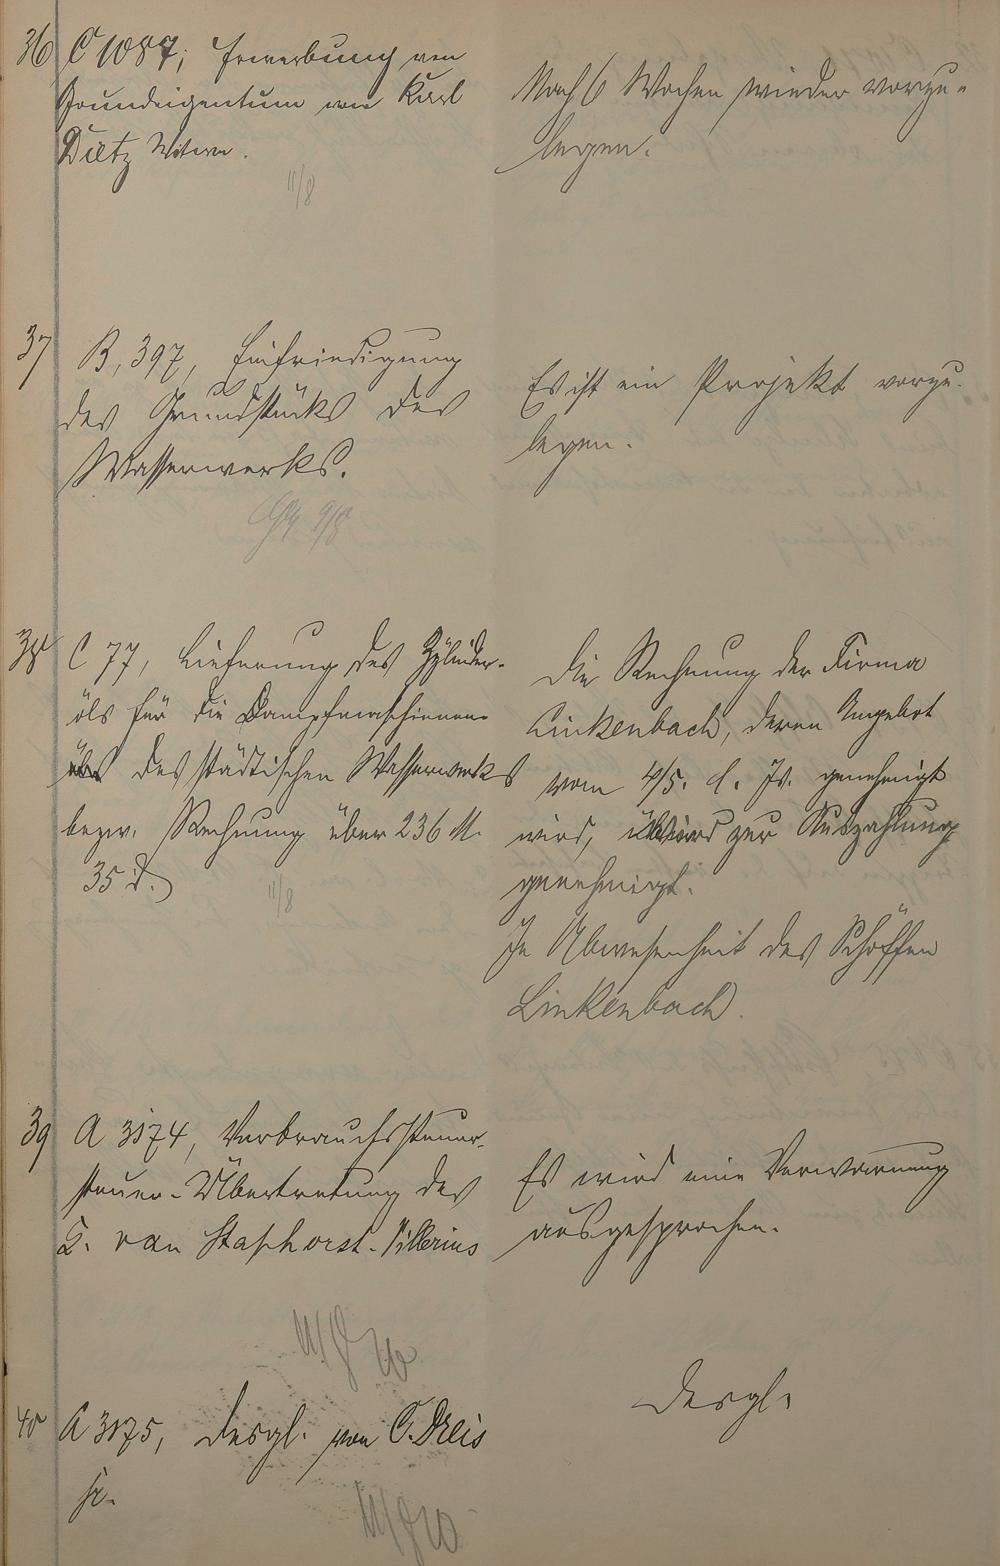 36 C 1087, Erwerbung von
Grundeigentum von Karl
Dietz Witwe.
11/8
Nach 6 Wochen wieder vorzu-
legen.
37 B. 397, Einfriedigung
des Grundstücks des
Wasserwerks.
9/8
Es ist ein Projekt vorzu-
legen.
38 C 77, Lieferung des Zylinder-
öls für die Dampfmaschinen
des städtischen Wasserwerks
bezw. Rechnung über 236 M.
35 d.
11/8
Die Rechnung der Firma
Linkenbach, deren Angebot
vom 4/5. l. Js. genehmigt
wird, wird zur Auszahlung
genehmigt.
In Abwesenheit des Schöffen
Linkenbach.
39 A 3174, Verbrauchssteuer-
steuer-Übertretung des
van Staphorst-
Es wird eine Verwarnung
ausgesprochen.
40 A 3175, desgl. von C. Dreis
sr.
desgl.